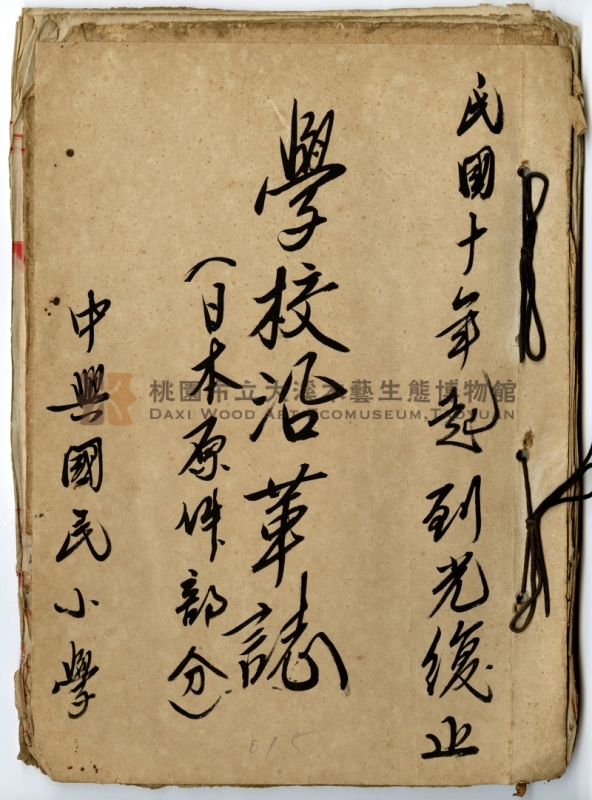 民國十年起到光復止
學校沿革誌
(日本原件部分)
中興國民小學
桃園市立大溪木藝生態博物館
DAXI WOOD ART ECOMUSEUM, TAOYUAN
015